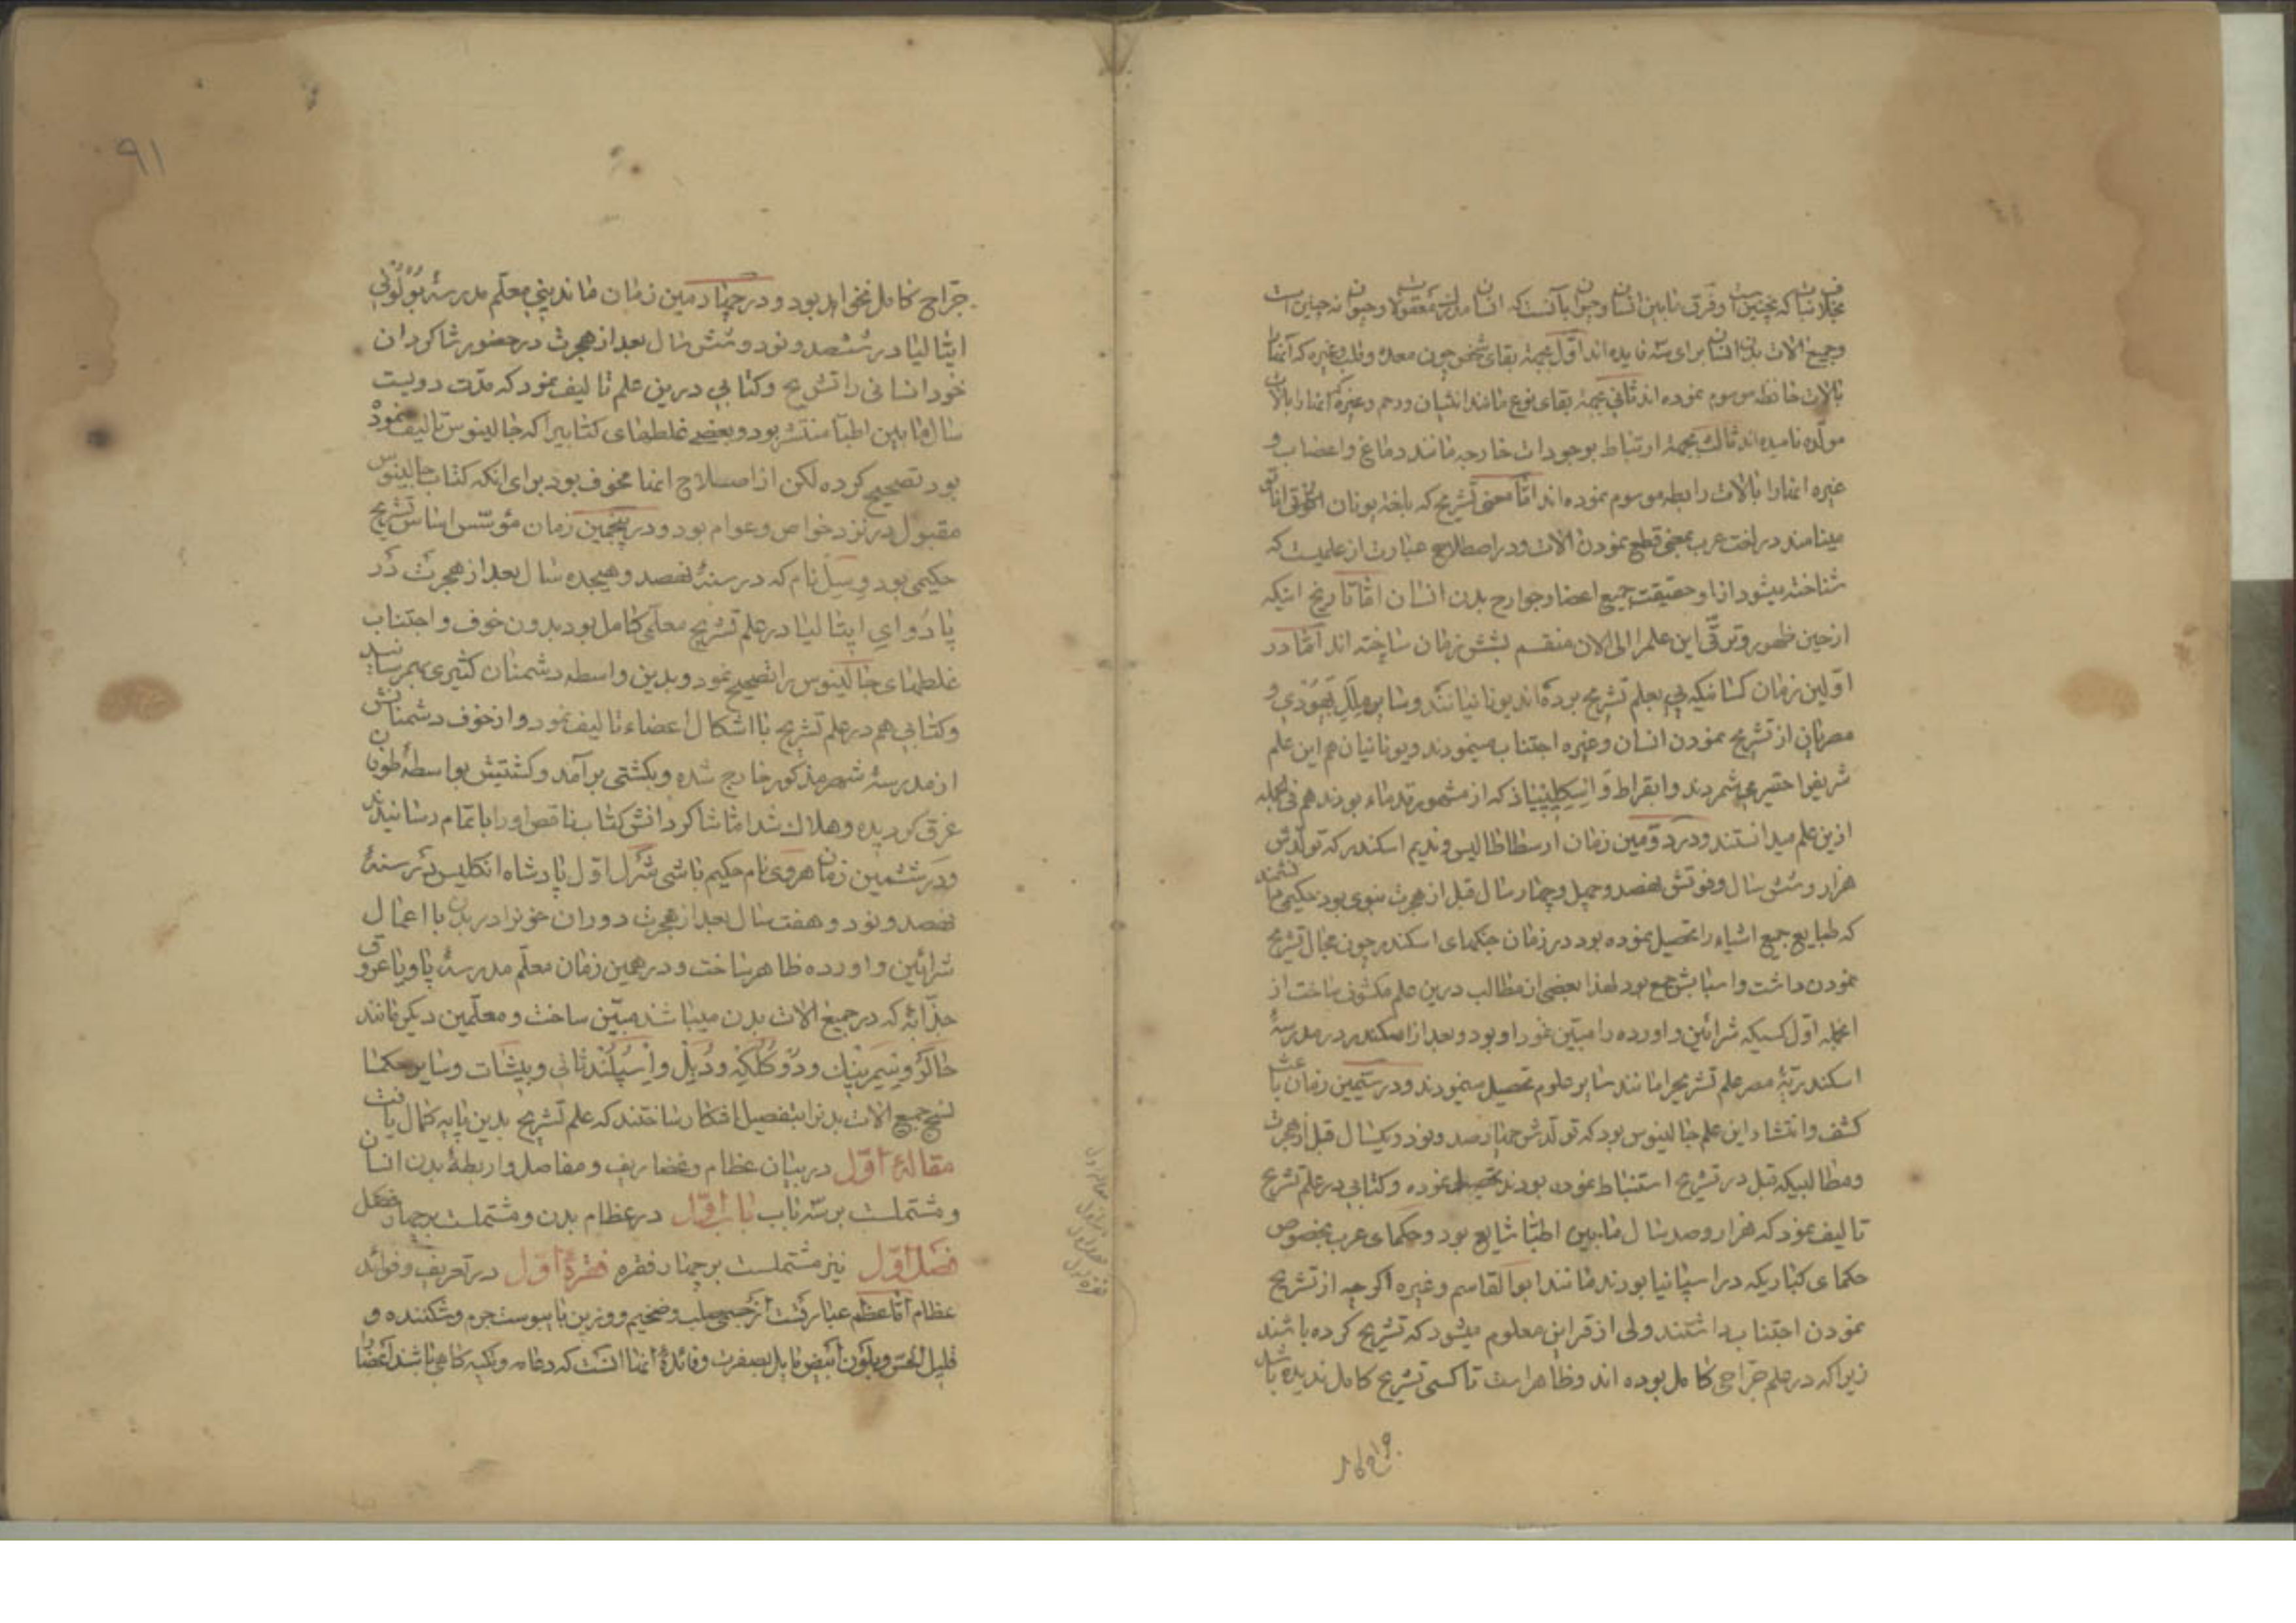 وجمیع الات بدن انسان برای سه فایده اند اوّل بجهة بقای شخص چون معده و قلب و غیره که آنها را
بالات حافظه موسوم نموده اند ثانی بجهة بقای نوع مانند انثیان ورحم وغیره که انها را بالات
مولّده نامیده اند ثالث بجهة ارتباط بموجودات خارجه مانند دماغ واعصاب و
غیره انها را بالات رابطه موسوم نموده اند امّا معنی تشریح که بلغة یونان
مینامند در لغت عرب بمعنی قطع نمودن الات ودر اصطلاح عبارت از علمیست که
شناخته میشود از او حقیقت جمیع اعضا وجوارح بدن انسان امّا تاریخ اینکه
از حین ظهور وترقّی این علم را الی الان منقسم بشش زمان ساخته اند امّا در
اوّلین زمان کسانیکه پی بعلم تشریح برده اند یونانیانند وسایر ملل یهودی و
مصریان از تشریح نمودن انسان وغیره اجتناب مینمودند ویونانیان هم این علم
شریف را حقیر می شمردند وابقراط و که از مشهور قدماء بودند هم فی الجمله
ازین علم میدانستند ودر دوّمین زمان ارسطاطالیس وندیم اسکندر که تولّدش
هزار وشش سال وفوتش نهصد وچهل وچهار سال قبل از هجرت نبوی بود حکیمی دانشمند
که طبایع جمیع اشیاء را تحصیل نموده بود در زمان جنگهای اسکندر چون مجال تشریح
نمودن داشت واسبابش جمع بود لهذا بعضی از مطالب درین علم مکشوف ساخت از
انجمله اوّل کسیکه شرائین واورده را مبیّن نمود او بود وبعد از اسکندر در مدرسهٔ
اسکندریّهٔ مصر علم تشریح را مانند سایر علوم تحصیل مینمودند ودر سیّمین زمان باعث
کشف وانتشار این علم جالینوس بود که تولّدش چهارصد ونود ویکسال قبل از هجرت
ومطالبیکه قبل در تشریح استنباط نموده بودند تحصیل نموده وکتابی در علم تشریح
تالیف نمود که هزار وصد سال مابین اطبّا شایع بود وحکمای عرب بخصوص
حکمای کباریکه در اسپانیا بودند مانند ابوالقاسم وغیره اگرچه از تشریح
نمودن اجتناب داشتند ولی از قراین معلوم میشود که تشریح کرده باشند
زیرا که در علم جرّاحی کامل بوده اند وظاهراست تا کسی تشریح کامل ندیده باشد
جرّاح کامل
۹۱
جرّاح کامل نخواهد بود ودر چهارمین زمان ماندینی معلّم مدرسهٔ بولونی
ایتالیا در ششصد ونود وشش سال بعد از هجرت در حضور شاکردان
خود انسانی را تشریح وکتابی درین علم تالیف نمود که مدّت دویست
سال مابین اطبّا منتشر بود وبعضی غلطهای کتابیرا که جالینوس تالیف نموده
بود تصحیح کرده لکن از اصلاح انها مخوف بود برای انکه کتاب جالینوس
مقبول در نزد خواص وعوام بود ودر پنجمین زمان مؤسّس اساس تشریح
حکیمی بود وسل نام که در سنهٔ نهصد وهیجده سال بعد از هجرت در
پادوای ایتالیا در علم تشریح معلّمی کامل بود بدون خوف واجتناب
غلطهای جالینوس را تصحیح نمود وبدین واسطه دشمنان کثیری بهمرسانید
وکتابی هم در علم تشریح با اشکال اعضاء تالیف نمود واز خوف دشمنانش
از مدرسهٔ شهر مذکور خارج شده وبکشتی برآمد وکشتیش بواسطهٔ طوفان
غرق کردیده وهلاک شد امّا شاکردانش کتاب ناقص او را باتمام رسانیدند
ودر ششمین زمان هروی نام حکیم باشی شرل اوّل پادشاه انکلیس در سنهٔ
نهصد ونود وهفت سال بعد از هجرت دوران خونرا در بدن با اعمال
شرائین واورده ظاهر ساخت ودر همین زمان معلّم مدرسهٔ پاویا عروق
جذّابهٔ که در جمیع الات بدن میباشد مبیّن ساخت ومعلّمین دیکر مانند
وسایر حکما
تشریح جمیع الات بدنرا بتفصیل اشکار ساختند که علم تشریح بدین پایه کمال یافت
مقالهٔ اوّل در بیان عظام وغضاریف ومفاصل واربطهٔ بدن انسان
ومشتملست بر سه باب باب اوّل در عظام بدن ومشتملست بر چهار فصل
فصل اوّل نیز مشتملست بر چهار فقره فقرهٔ اوّل در تعریف وفوائد
عظام امّا عظم عبارتست از جسمی صلب وضخیم ووزین با یبوست جرم وشکننده و
قلیل الحسّ وبلون ابیض مایل بصفرت وفائدهٔ انها انست که دعامه وتکیه کاهی باشند اعضا را